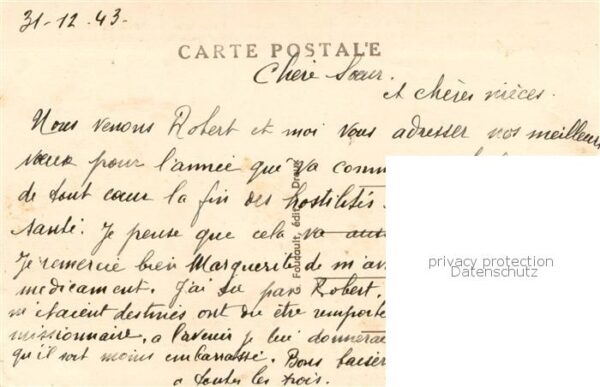 31-12.43.
CARTE POSTALE
Chère Soeur.
et chères nièces.
Nous venons Robert et moi vous adresser nos meilleurs
voeux pour l'année que va comm
de tout coeur la fin des hostilités.
santé. Je pense que cela va auss
Je remercie bien Marguerite de m'av
médicament. J'ai su par Robert,
m'étaient destinés ont du être remporté
missionnaire, a l'avenir je lui donnerai
qu'il soit moins embarrassé. Bons baiser
a toutes les trois.
Foucault, édit., Dreux
privacy protection
Datenschutz